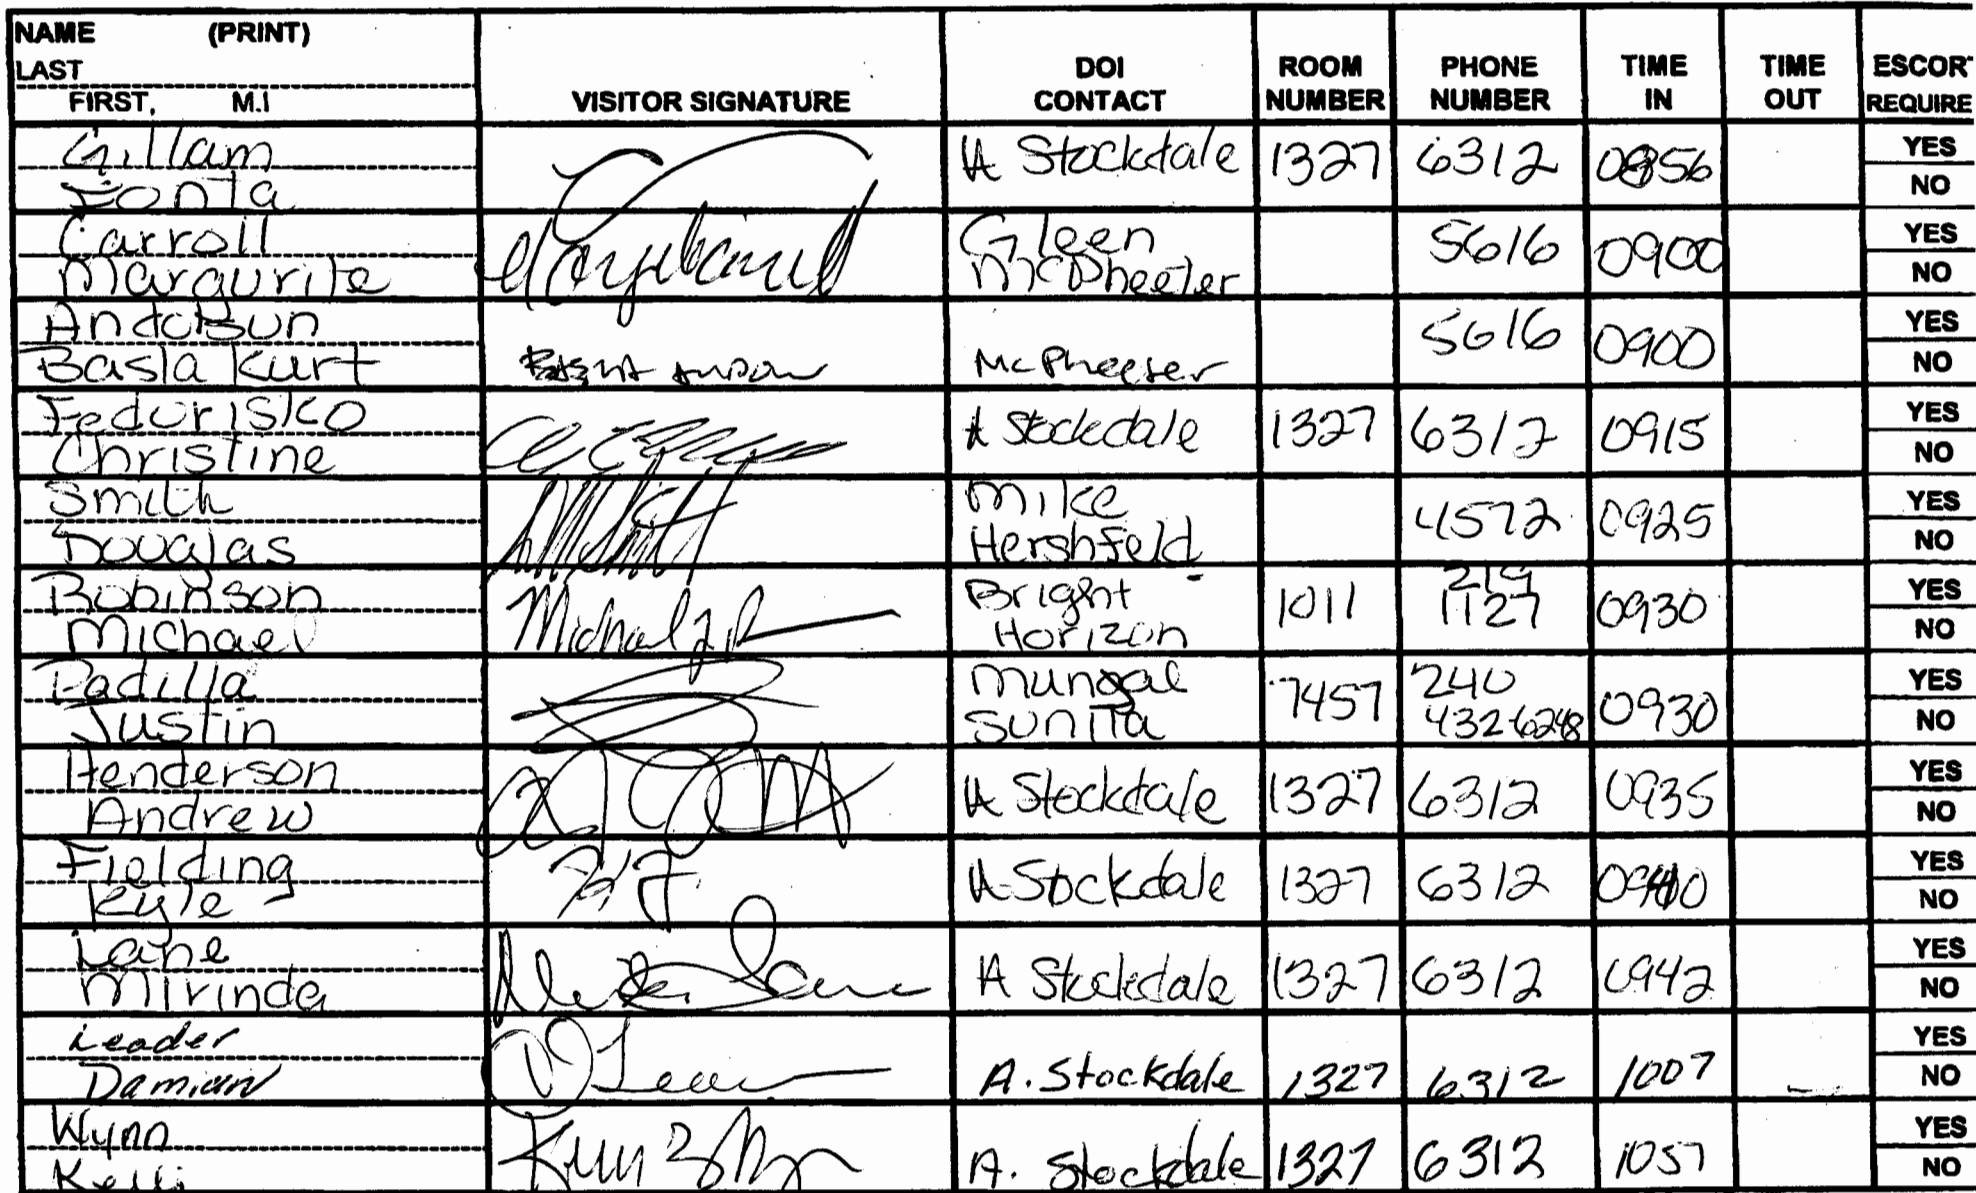 NAME (PRINT)
LAST
FIRST, M.I
VISITOR SIGNATURE
DOI
CONTACT
ROOM
NUMBER
PHONE
NUMBER
TIME
IN
TIME
OUT
ESCOR
REQUIRE
Gillam
A Stockdale 1327 6312 0856
YES
NO
Carroll
Margurite
Gleen
McPheeter
5616 0900
YES
NO
Basla Kurt
McPheeter
5616 0900
YES
NO
Fedorisko
Christine
A Stockdale 1327 6312 0915
YES
NO
Smith
Douglas
Mike
Hershfeld
4572 0925
YES
NO
Robinson
Michael
Michael
Bright
Horizon
1011
219
1127
0930
YES
NO
Padilla
Justin
Mungal
Sunita
7457
240
432-6248
0930
YES
NO
Henderson
Andrew
A Stockdale 1327 6312 0935
YES
NO
Fielding
Kyle
A Stockdale 1327 6312 0940
YES
NO
Lane
Mirinda
A Stockdale 1327 6312 0942
YES
NO
Leader
Damian
A. Stockdale 1327 6312 1007
YES
NO
Wynn
Kelli
A. Stockdale 1327 6312 1057
YES
NO